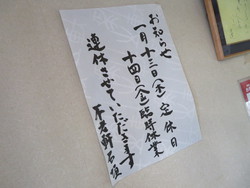 お知らせ
一月十三日(木)定休日
十四日(金)臨時休業
連休させていただきます
不老軒石垣